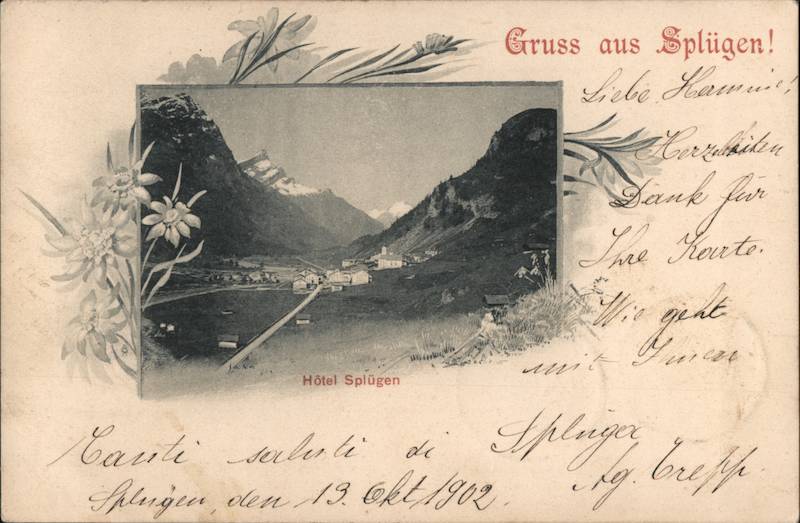 Gruss aus Splügen!
Liebe Hermine!
Herzlichen
Dank für
Ihre Karte.
Wie geht
mit Ihnen
Hôtel Splügen
Tanti saluti di Spluga
Ag. Trepp.
Splügen, den 13. Okt 1902.